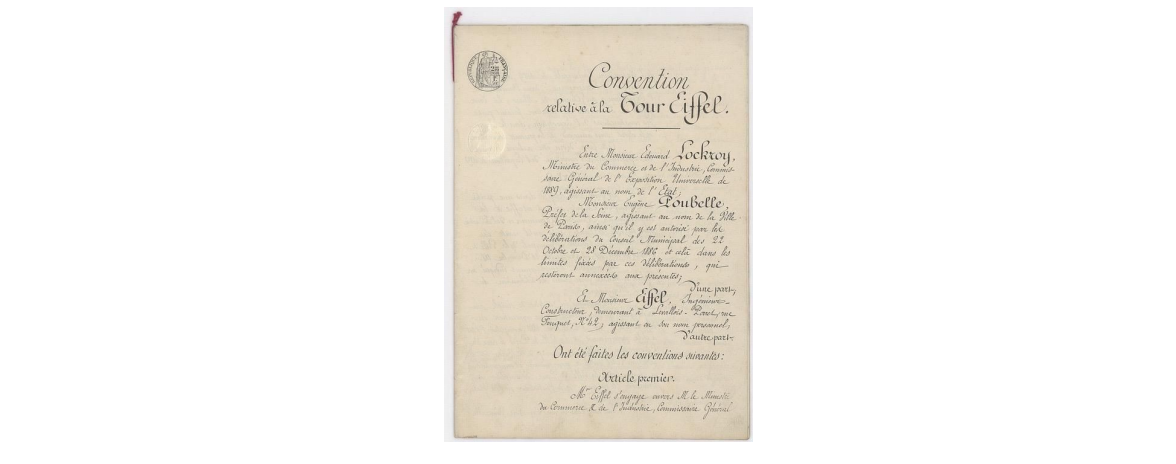 Convention
relative à la Tour Eiffel.
Entre Monsieur Edouard Lockroy,
Ministre du Commerce et de l'Industrie, Commis-
saire Général de l'Exposition Universelle de
1889, agissant au nom de l'Etat;
Monsieur Eugène Poubelle,
Préfet de la Seine, agissant au nom de la Ville
de Paris, ainsi qu'il y est autorisé par les
délibérations du Conseil Municipal des 22
Octobre et 28 Décembre 1886 et celà dans les
limites fixées par ces délibérations, qui
resteront annexées aux présentes;
d'une part,
Et Monsieur Eiffel, Ingénieur-
Constructeur, demeurant à Levallois-Perret, rue
Fouquet, N°42, agissant en son nom personnel,
d'autre part,
Ont été faites les conventions suivantes:
Article premier.
Mr Eiffel s'engage envers M. le Ministre
du Commerce & de l'Industrie, Commissaire Général